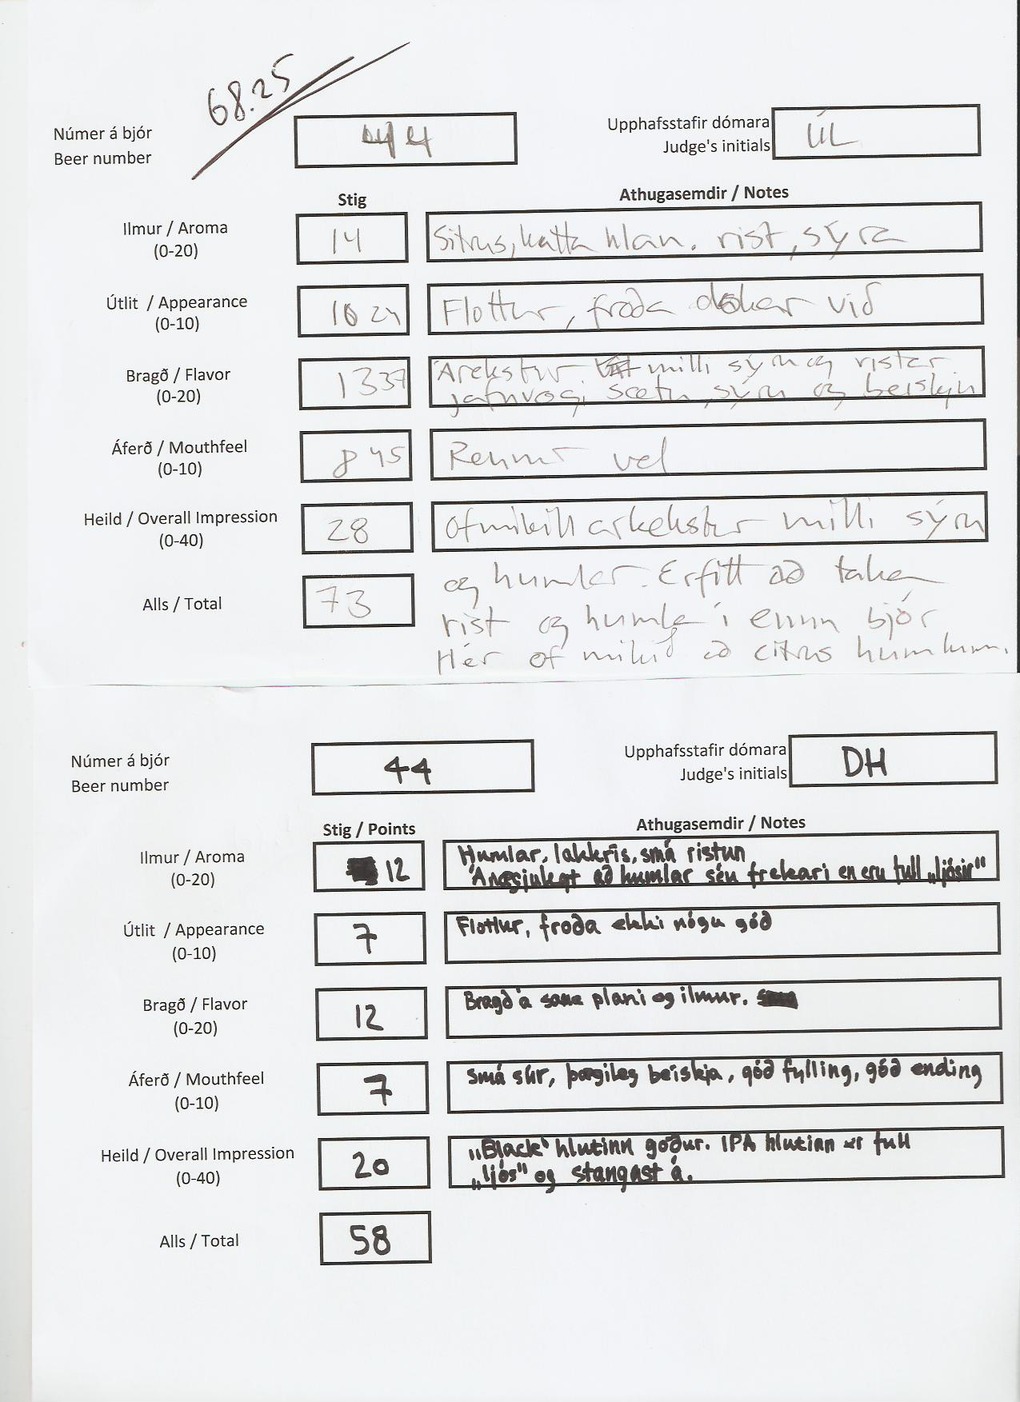 68.25
Númer á bjór
Beer number
44
Upphafsstafir dómara
Judge's initials
ÚL
Stig
Athugasemdir / Notes
Ilmur / Aroma
(0-20)
14
Sitrus, katta hlan. rist, sýra
Útlit / Appearance
(0-10)
10 24
Flottur, froða dökkar við
Bragð / Flavor
(0-20)
13 37
Árekstur milli sýru og ristar.
jafnvægi sætu, sýru og beiskju
Áferð / Mouthfeel
(0-10)
8 45
Rennur vel
Heild / Overall Impression
(0-40)
28
Of mikill arkekstur milli sýru
og humlar. Erfitt að taka
rist og humla í einn bjór
Hér of mikið að citrus humlum.
Alls / Total
73
Númer á bjór
Beer number
44
Upphafsstafir dómara
Judge's initials
DH
Stig / Points
Athugasemdir / Notes
Ilmur / Aroma
(0-20)
12
Humlar, lakkrís, smá ristun
Ánægjulegt að humlar séu frekari en eru full „ljósir"
Útlit / Appearance
(0-10)
7
Flottur, froða ekki nógu góð
Bragð / Flavor
(0-20)
12
Bragð á sama plani og ilmur.
Áferð / Mouthfeel
(0-10)
7
Smá súr, þægileg beiskja, góð fylling, góð ending
Heild / Overall Impression
(0-40)
20
„Black" hlutinn góður. IPA hlutinn er full
„ljós" og stangast á.
Alls / Total
58